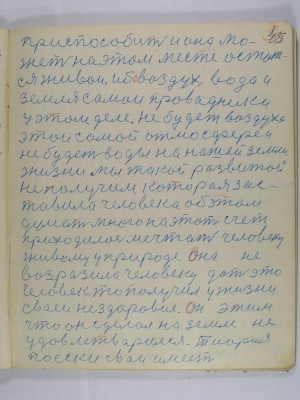 45
приспособит и она мо-
жет на этом месте остат-
ся живои, ибо воздух, вода и
земля самои провадники
у этом деле. не будет воздуха
этои самой атмосферей
не будет воды на нашей земли
жизни мы такой развитой
не получим, которая зас-
тавила человека об этом
думат много на этот счет
приходилос мечтат человеку
живому у природе. Она не
возразила человеку дат это
человек то получил у жизни
сваеи нездоровие. Он этим
что он сделал на земли не
удовлетварился. Тиория
поески сваи имеет